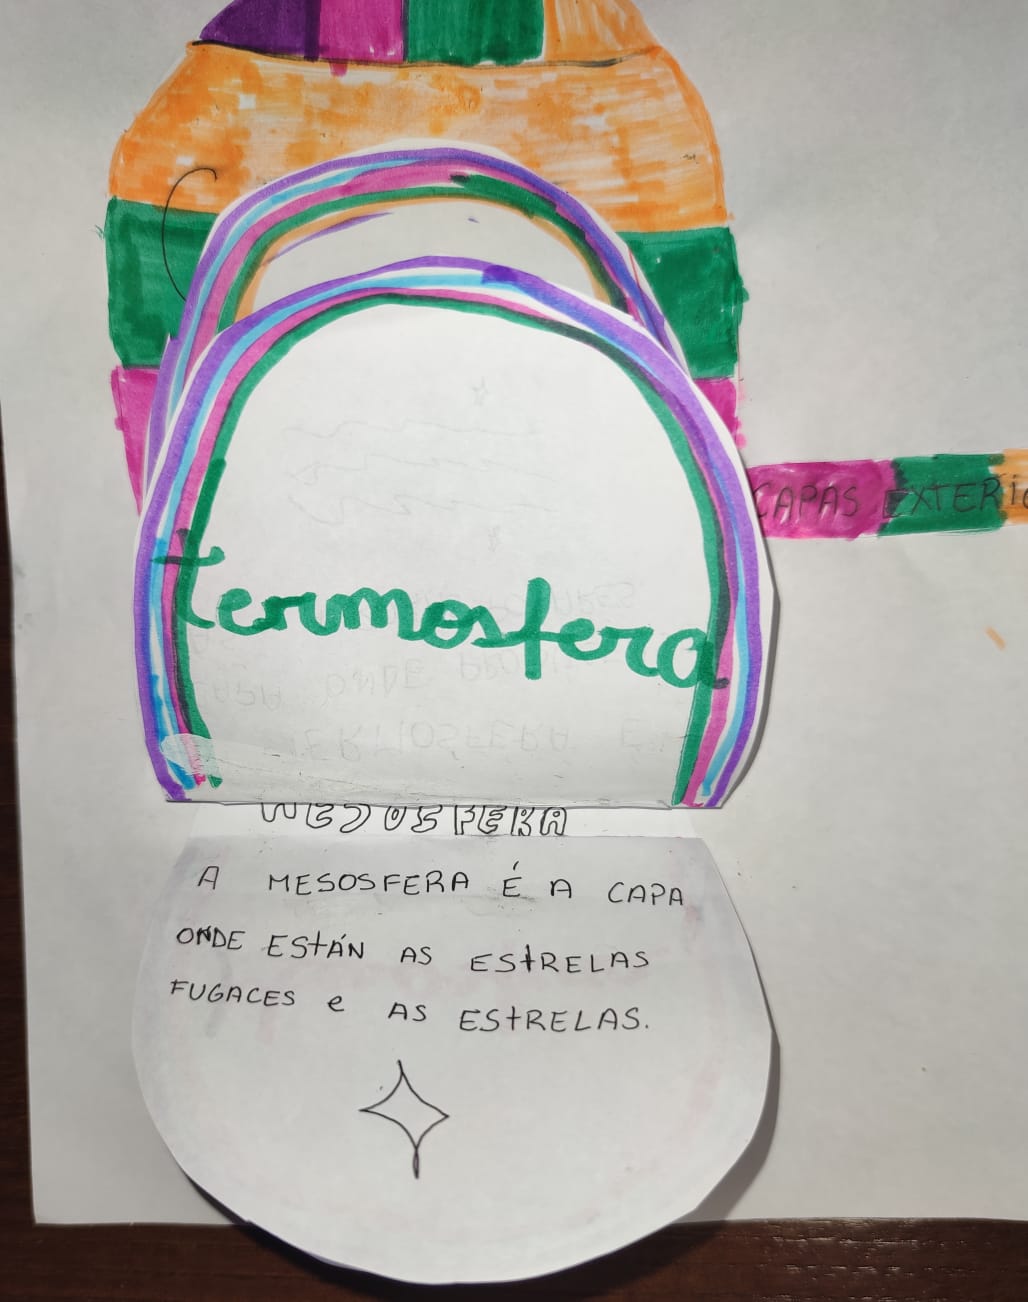 CAPAS EXTERIO
termosfera
MESOSFERA
A MESOSFERA É A CAPA
ONDE ESTÁN AS ESTRELAS
FUGACES e AS ESTRELAS.